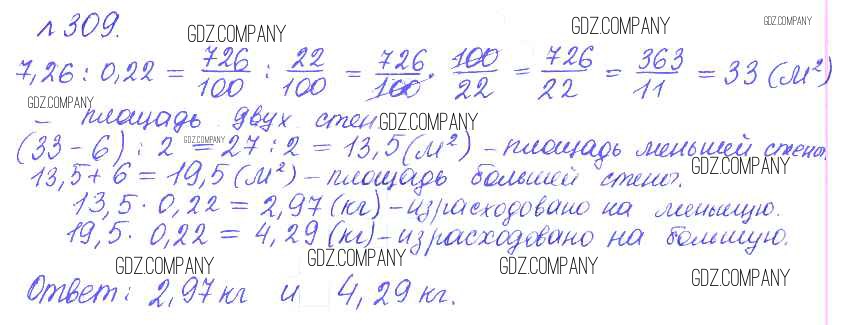 № 309.
GDZ.COMPANY GDZ.COMPANY GDZ.COMPANY
7,26 : 0,22 = 726/100 : 22/100 = 726/100 · 100/22 = 726/22 = 363/11 = 33 (м²)
GDZ.COMPANY
– площадь двух стен. GDZ.COMPANY
(33 – 6) : 2 = 27 : 2 = 13,5 (м²) – площадь меньшей стены.
GDZ.COMPANY GDZ.COMPANY
13,5 + 6 = 19,5 (м²) – площадь большей стены.
13,5 · 0,22 = 2,97 (кг) – израсходовано на меньшую.
19,5 · 0,22 = 4,29 (кг) – израсходовано на большую.
GDZ.COMPANY GDZ.COMPANY GDZ.COMPANY GDZ.COMPANY
Ответ: 2,97 кг и 4,29 кг.